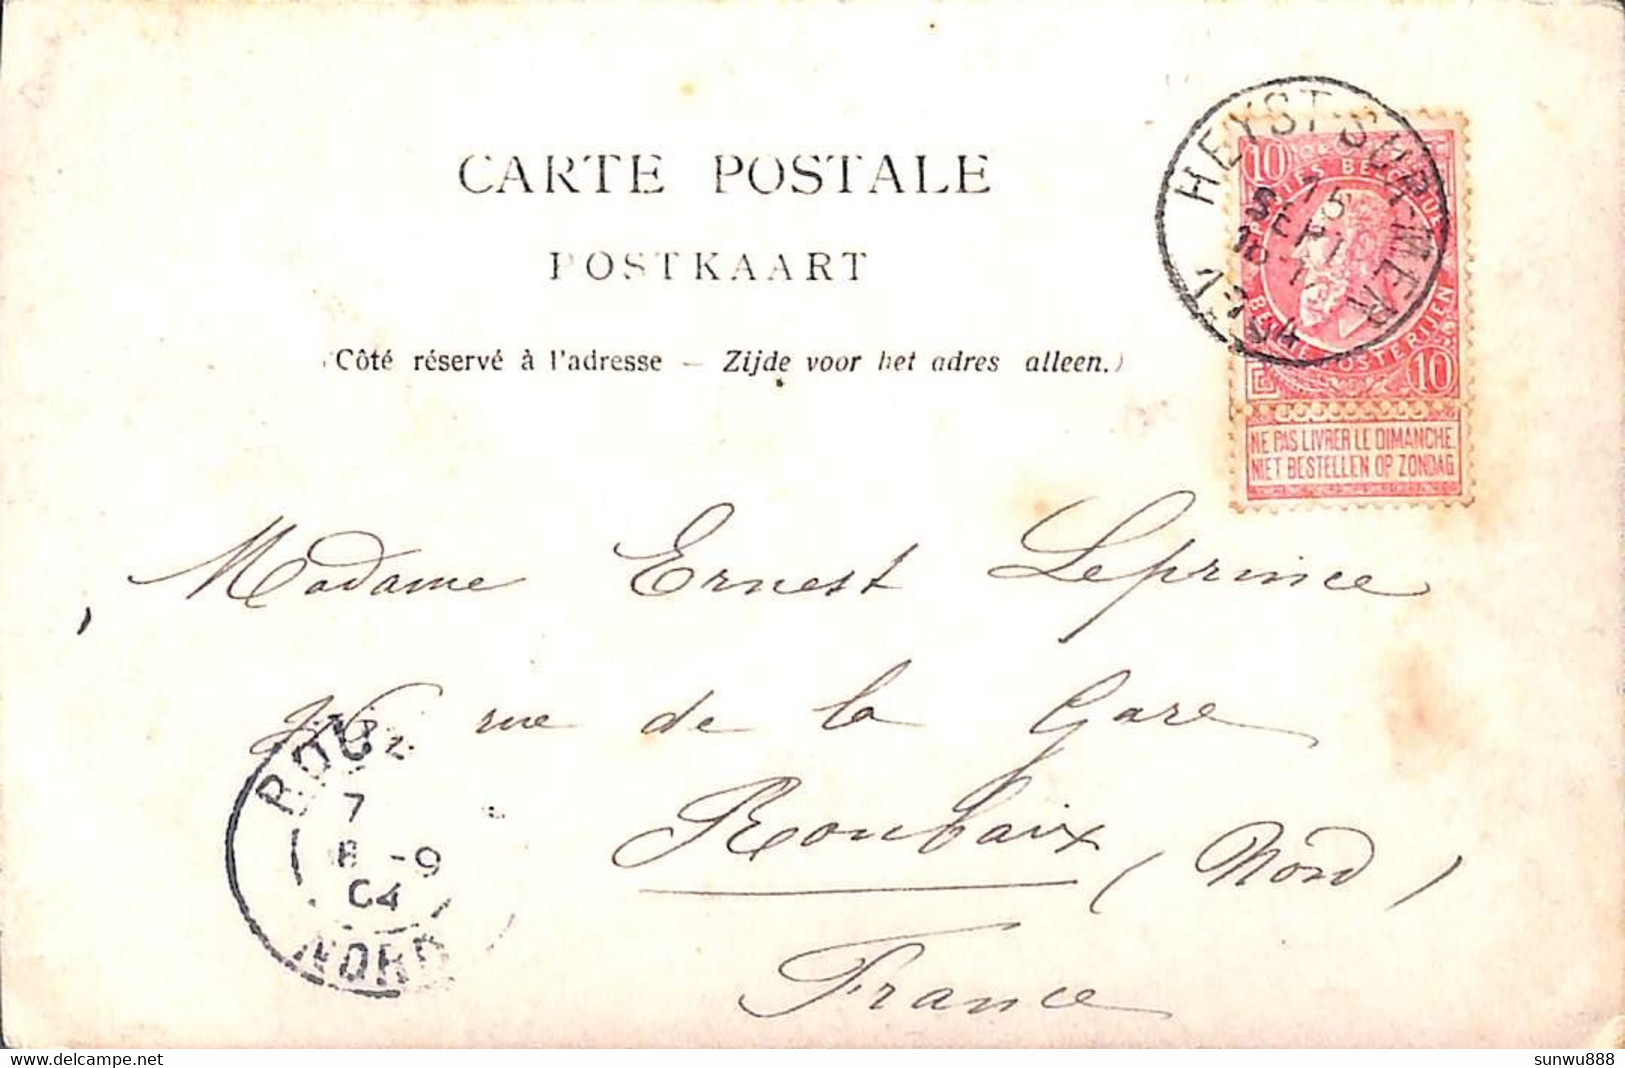 CARTE POSTALE
POSTKAART
(Côté réservé à l'adresse – Zijde voor het adres alleen.)
HEYST-SUR-MER
15
SEPT
1904
10 10
POSTES BELGIQUE
BELGIE POSTERIJEN
10
NE PAS LIVRER LE DIMANCHE
NIET BESTELLEN OP ZONDAG
Madame Ernest Leprince
rue de la Gare
Roubaix (Nord)
France
ROU
7
-9
04
NORD
sunwu888